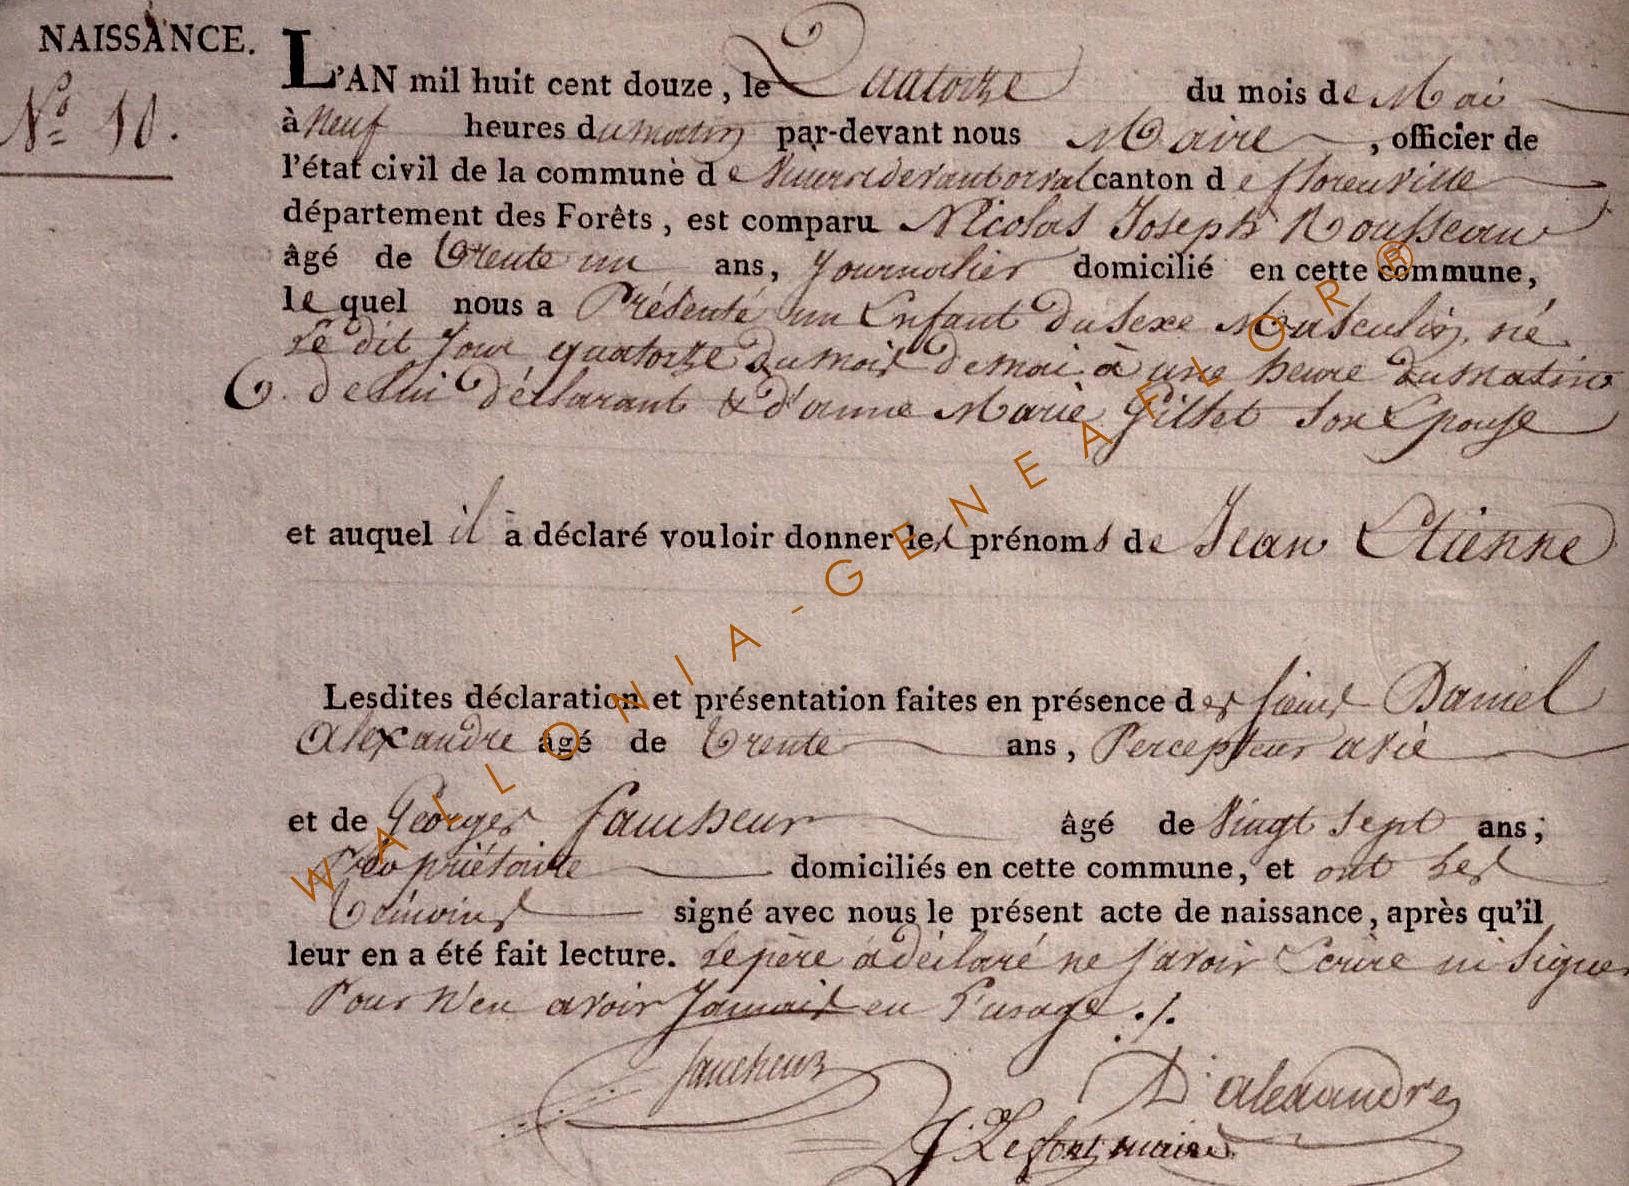 NAISSANCE.
N.º 10.
L'AN mil huit cent douze, le Quatorze du mois de Mai
à Neuf heures du matin par-devant nous Maire, officier de
l'état civil de la commune de devant orval canton de florenville
département des Forêts, est comparu Nicolas Joseph Rousseau
âgé de Trente un ans, Journalier domicilié en cette commune,
le quel nous a Présenté un Enfant du sexe Masculin, né
Le dit Jour quatorze du mois de mai à une heure du matin
de lui déclarant & d'anne Marie Gillet son Epouse
et auquel il a déclaré vouloir donner les prénoms de Jean Etienne
Lesdites déclaration et présentation faites en présence des sieurs Daniel
Alexandre âgé de Trente ans, Percepteur
et de Georges faucheur âgé de Vingt sept ans;
Propriétaire domiciliés en cette commune, et ont les
Témoins signé avec nous le présent acte de naissance, après qu'il
leur en a été fait lecture. Le père a déclaré ne savoir Ecrire ni signer
Pour n'en avoir Jamais eu l'usage ./.
faucheur
D. alexandre
Lefort maire
WALLONIA-GENEAFLOR®